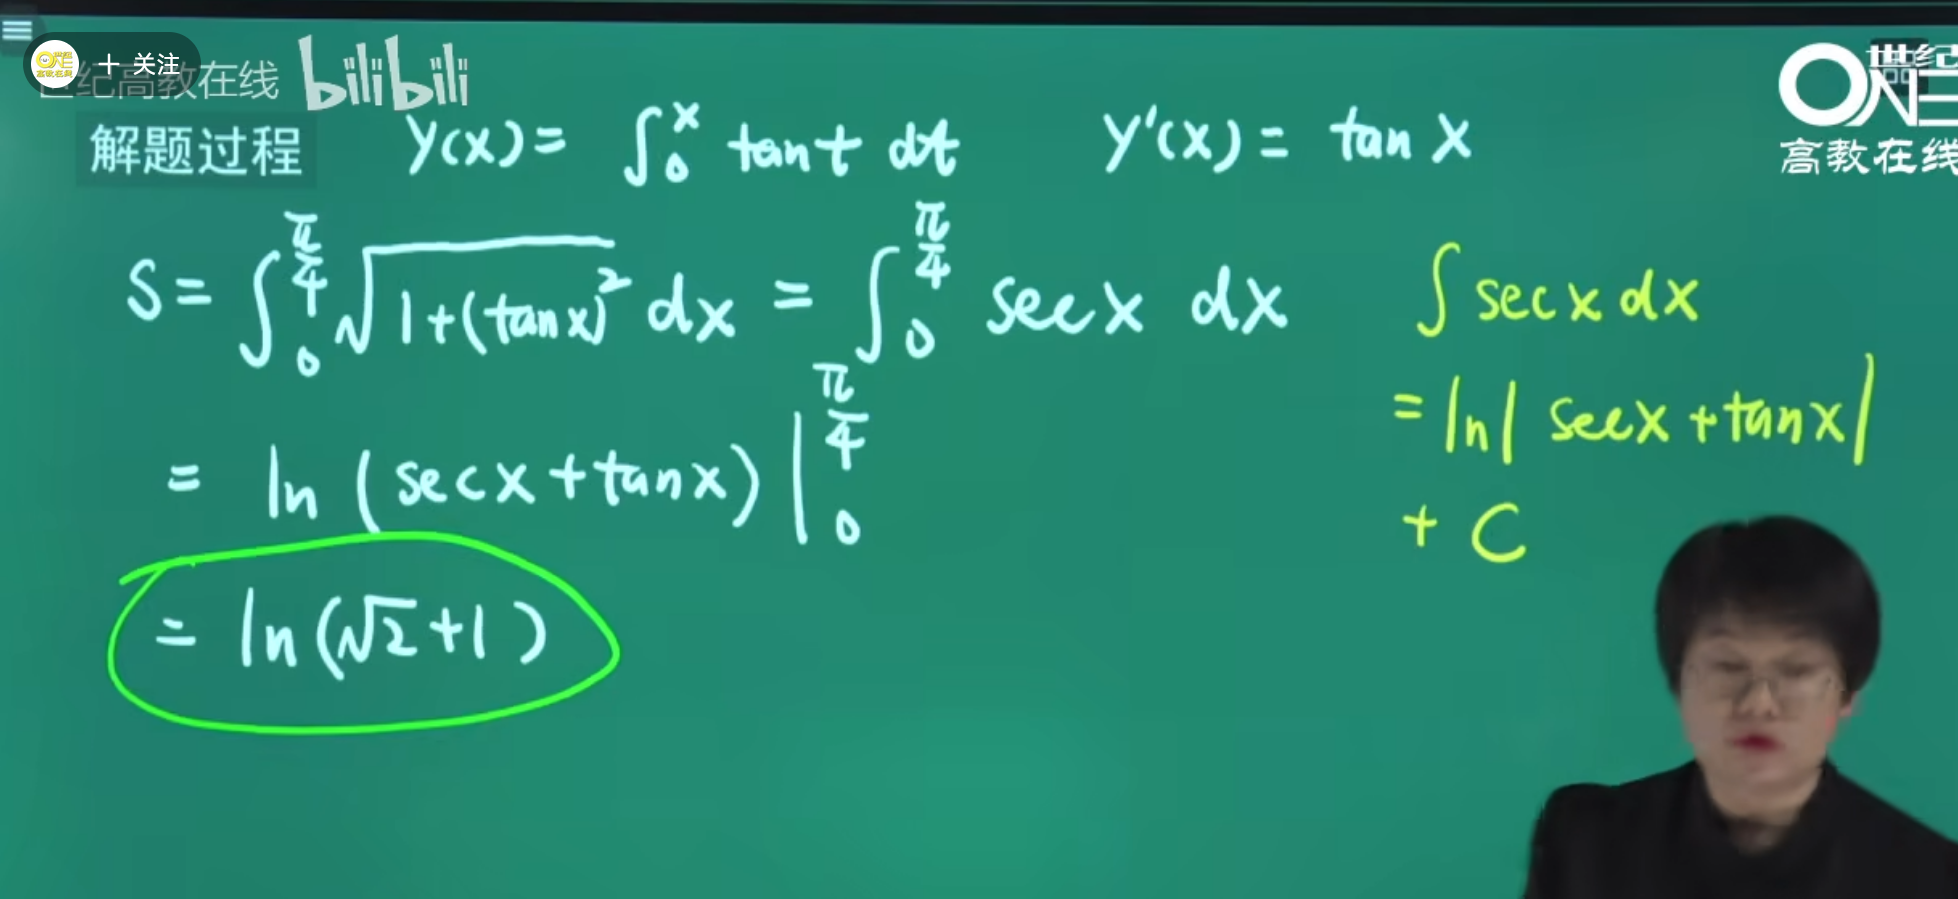 + 关注
世纪高教在线 bilibili
世纪
ONE
高教在线
解题过程
y(x) = ∫₀ˣ tan t dt    y'(x) = tan x
S = ∫₀^(π/4) √(1+(tan x)²) dx = ∫₀^(π/4) sec x dx
= ln (sec x + tan x) |₀^(π/4)
= ln(√2+1)
∫ sec x dx
= ln| sec x + tan x|
+ C